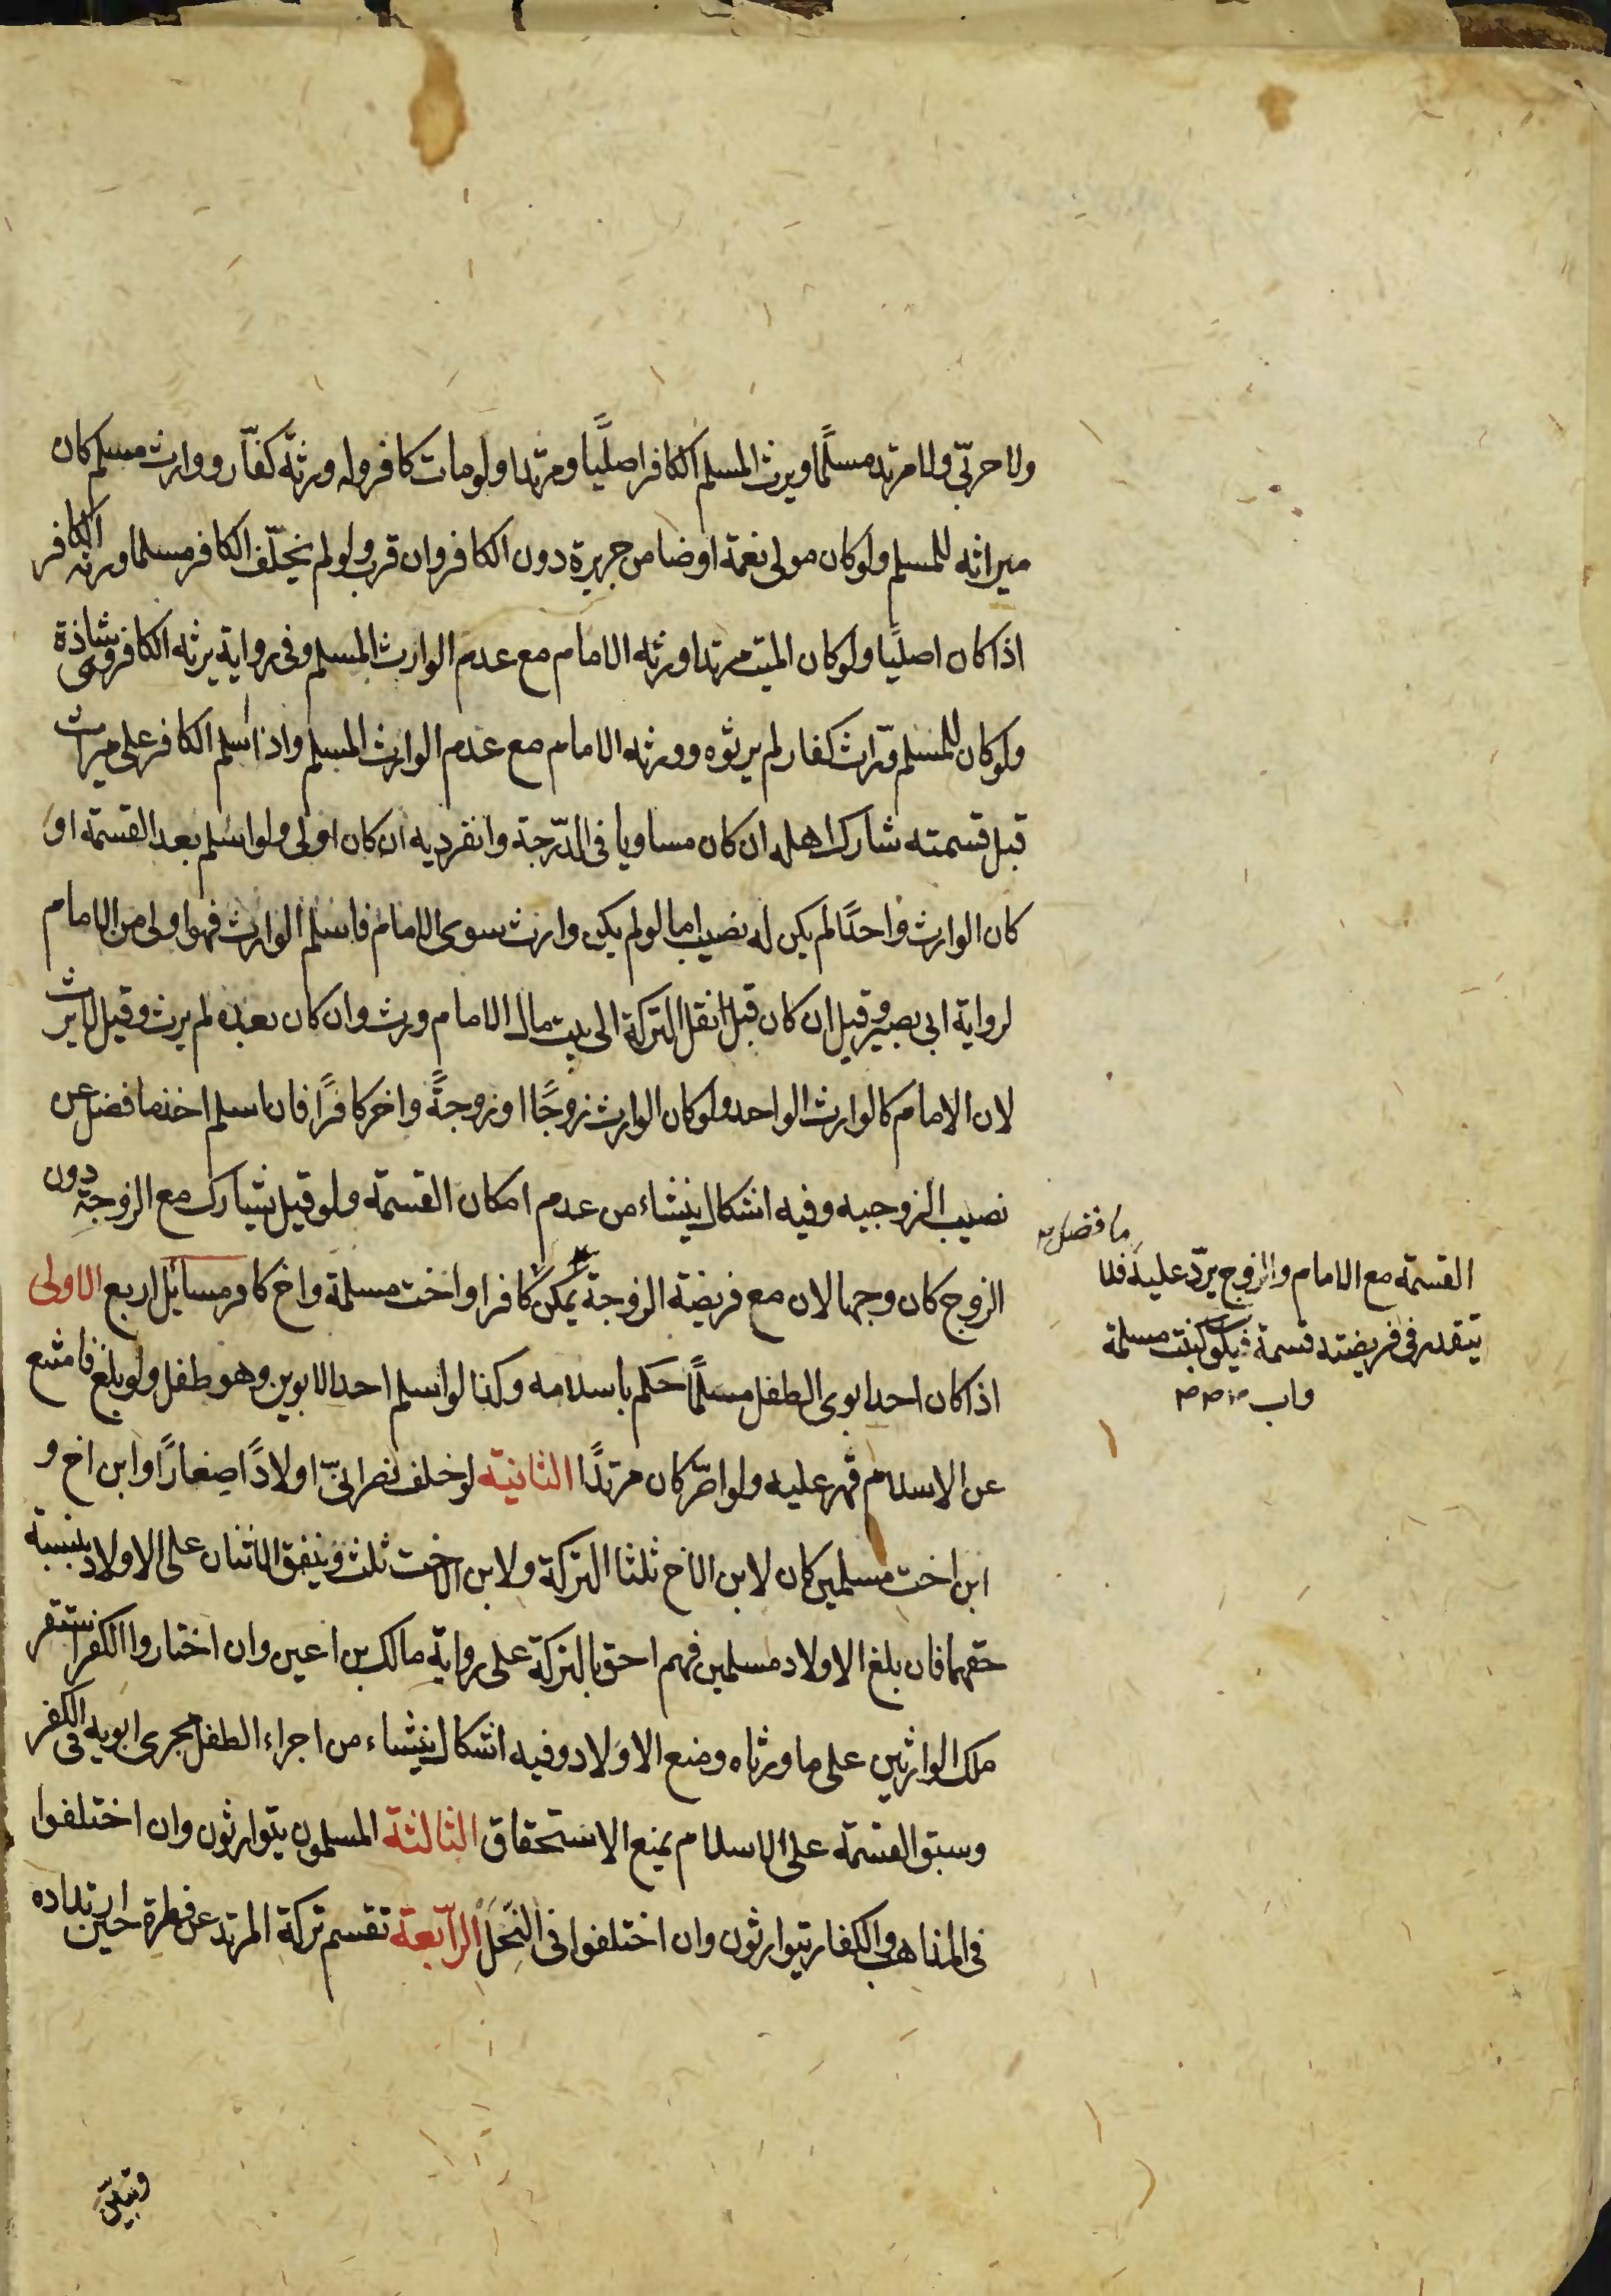 ولا حربّي ولا مرتد مسلمًا ويرث المسلم الكافر اصليًّا ومرتدا ولو مات كافر وله ورثة كفّار ووارث مسلم كان
ميراثه للمسلم ولو كان مولى نعمة او ضامن جريرة دون الكافر وان قرب ولو لم يخلّف الكافر مسلما ورثه الكافر
اذا كان اصليًا ولو كان الميت مرتدا ورثه الامام مع عدم الوارث المسلم وفى رواية يرثه الكافر وهى شاذة
ولو كان للمسلم ورّاث كفار لم يرثوه وورثه الامام مع عدم الوارث المسلم واذا اسلم الكافر على ميراث
قبل قسمته شارك اهله ان كان مساويا فى الدّرجة وانفرد به ان كان اولى ولو اسلم بعد القسمة او
كان الوارث واحدًا لم يكن له نصيب اما لو لم يكن وارث سوى الامام فاسلم الوارث فهو اولى من الامام
لرواية ابى بصير وقيل ان كان قبل نقل التركة الى بيت مال الامام ورث وان كان بعده لم يرث وقيل لا يرث
لان الامام كالوارث الواحد ولو كان الوارث زوجًا او زوجةً واخر كافرًا فان اسلم اخذ ما فضل عن
نصيب الزوجيه وفيه اشكال ينشاء من عدم امكان القسمة ولو قيل يشارك مع الزوجة دون
الزوج كان وجها لان مع فريضة الزوجة يمكن كافرا واخت مسلمة واخ كافر مسائل اربع الاولى
اذا كان احد ابوى الطفل مسلمًا حكم باسلامه وكذا لو اسلم احد الابوين وهو طفل ولو بلغ فامتنع
عن الاسلام قهر عليه ولو اصرّ كان مرتدًا الثانية لو خلف نصرانىّ اولادًا صغارًا وابن اخ و
ابن اخت مسلمين كان لابن الاخ ثلثا التركة ولابن الاخت ثلث وينفق الاثنان على الاولاد بنسبة
حقهما فان بلغ الاولاد مسلمين فهم احق بالتركة على رواية مالك بن اعين وان اختاروا الكفر استقر
ملك الوارثين على ما ورثاه ومنع الاولاد وفيه اشكال ينشاء من اجراء الطفل مجرى ابويه فى الكفر
وسبق القسمة على الاسلام يمنع الاستحقاق الثالثة المسلمون يتوارثون وان اختلفوا
فى المذاهب والكفار يتوارثون وان اختلفوا فى النحل الرابعة تقسم تركة المرتد عن فطرة حين ارتداده
ما فضل
القسمة مع الامام والزوج يردّ عليه فلا
يتقدر فى فريضته قسمة فيكون كبنت مسلمة
واب
وتبين